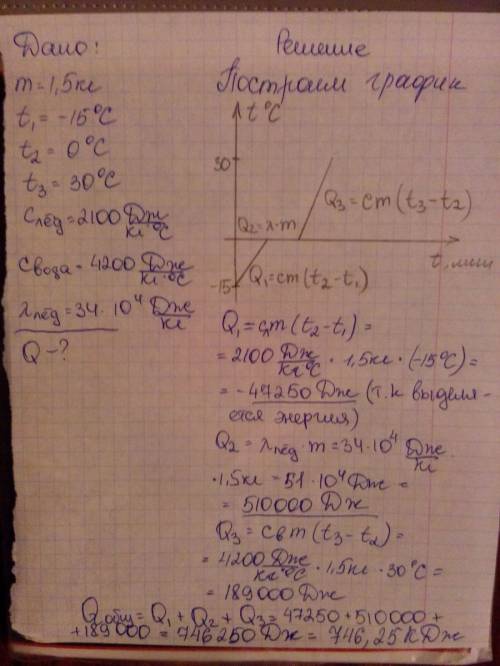 Дано:
m = 1,5 кг
t₁ = -15°С
t₂ = 0°С
t₃ = 30°С
Cлёд = 2100 Дж/кг°С
Cвода = 4200 Дж/кг·°С
λлёд = 34·10⁴ Дж/кг
Q-?
Решение
Построим график
t°С
30
Q₃ = cm(t₃-t₂)
Q₂ = λ·m
t, мин
-15
Q₁ = cm(t₂-t₁)
Q₁ = cлm(t₂-t₁) =
= 2100 Дж/кг°С · 1,5кг · (-15°С) =
= -47250 Дж (т.к выделя-
ется энергия)
Q₂ = λлёд·m = 34·10⁴ Дж/кг ·
·1,5кг = 51·10⁴ Дж =
= 510000 Дж
Q₃ = cвm(t₃-t₂) =
= 4200 Дж/кг·°С · 1,5кг · 30°С =
= 189000 Дж
Qобщ = Q₁ + Q₂ + Q₃ = 47250 + 510000 +
+189000 = 746250 Дж = 746,25 кДж